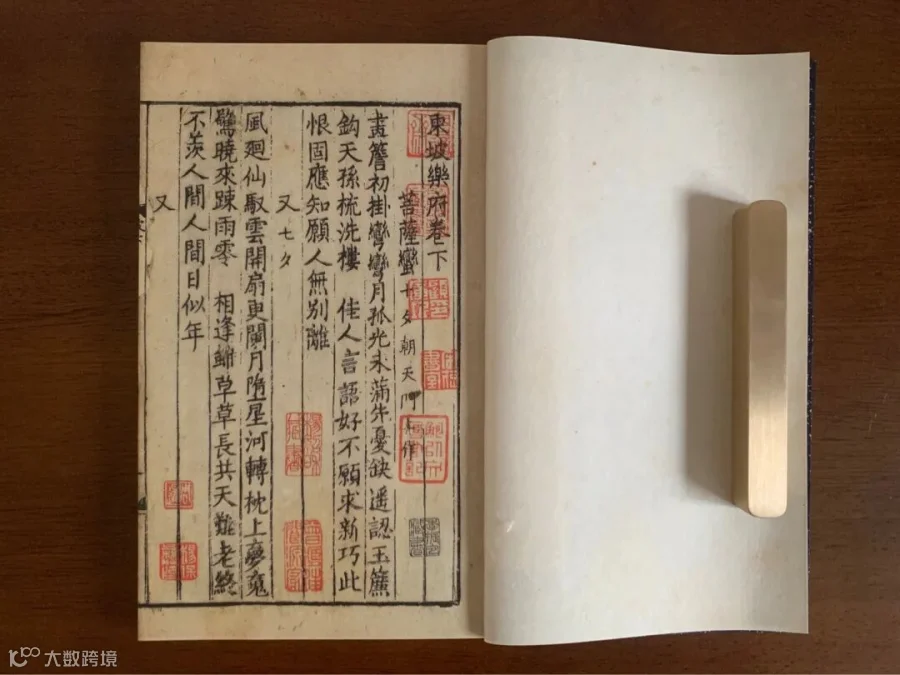 東坡樂府卷下
菩薩蠻 七夕朝天門上作
畫簷初掛彎彎月孤光未滿先憂缺遥認玉簾
鈎天孫梳洗樓 佳人言語好不願求新巧此
恨固應知願人無別離
又 七夕
風廻仙馭雲開扇更闌月墮星河轉枕上夢魂
驚曉來踈雨零 相逢雖草草長共天難老終
不羨人間人間日似年
又
大数跨境